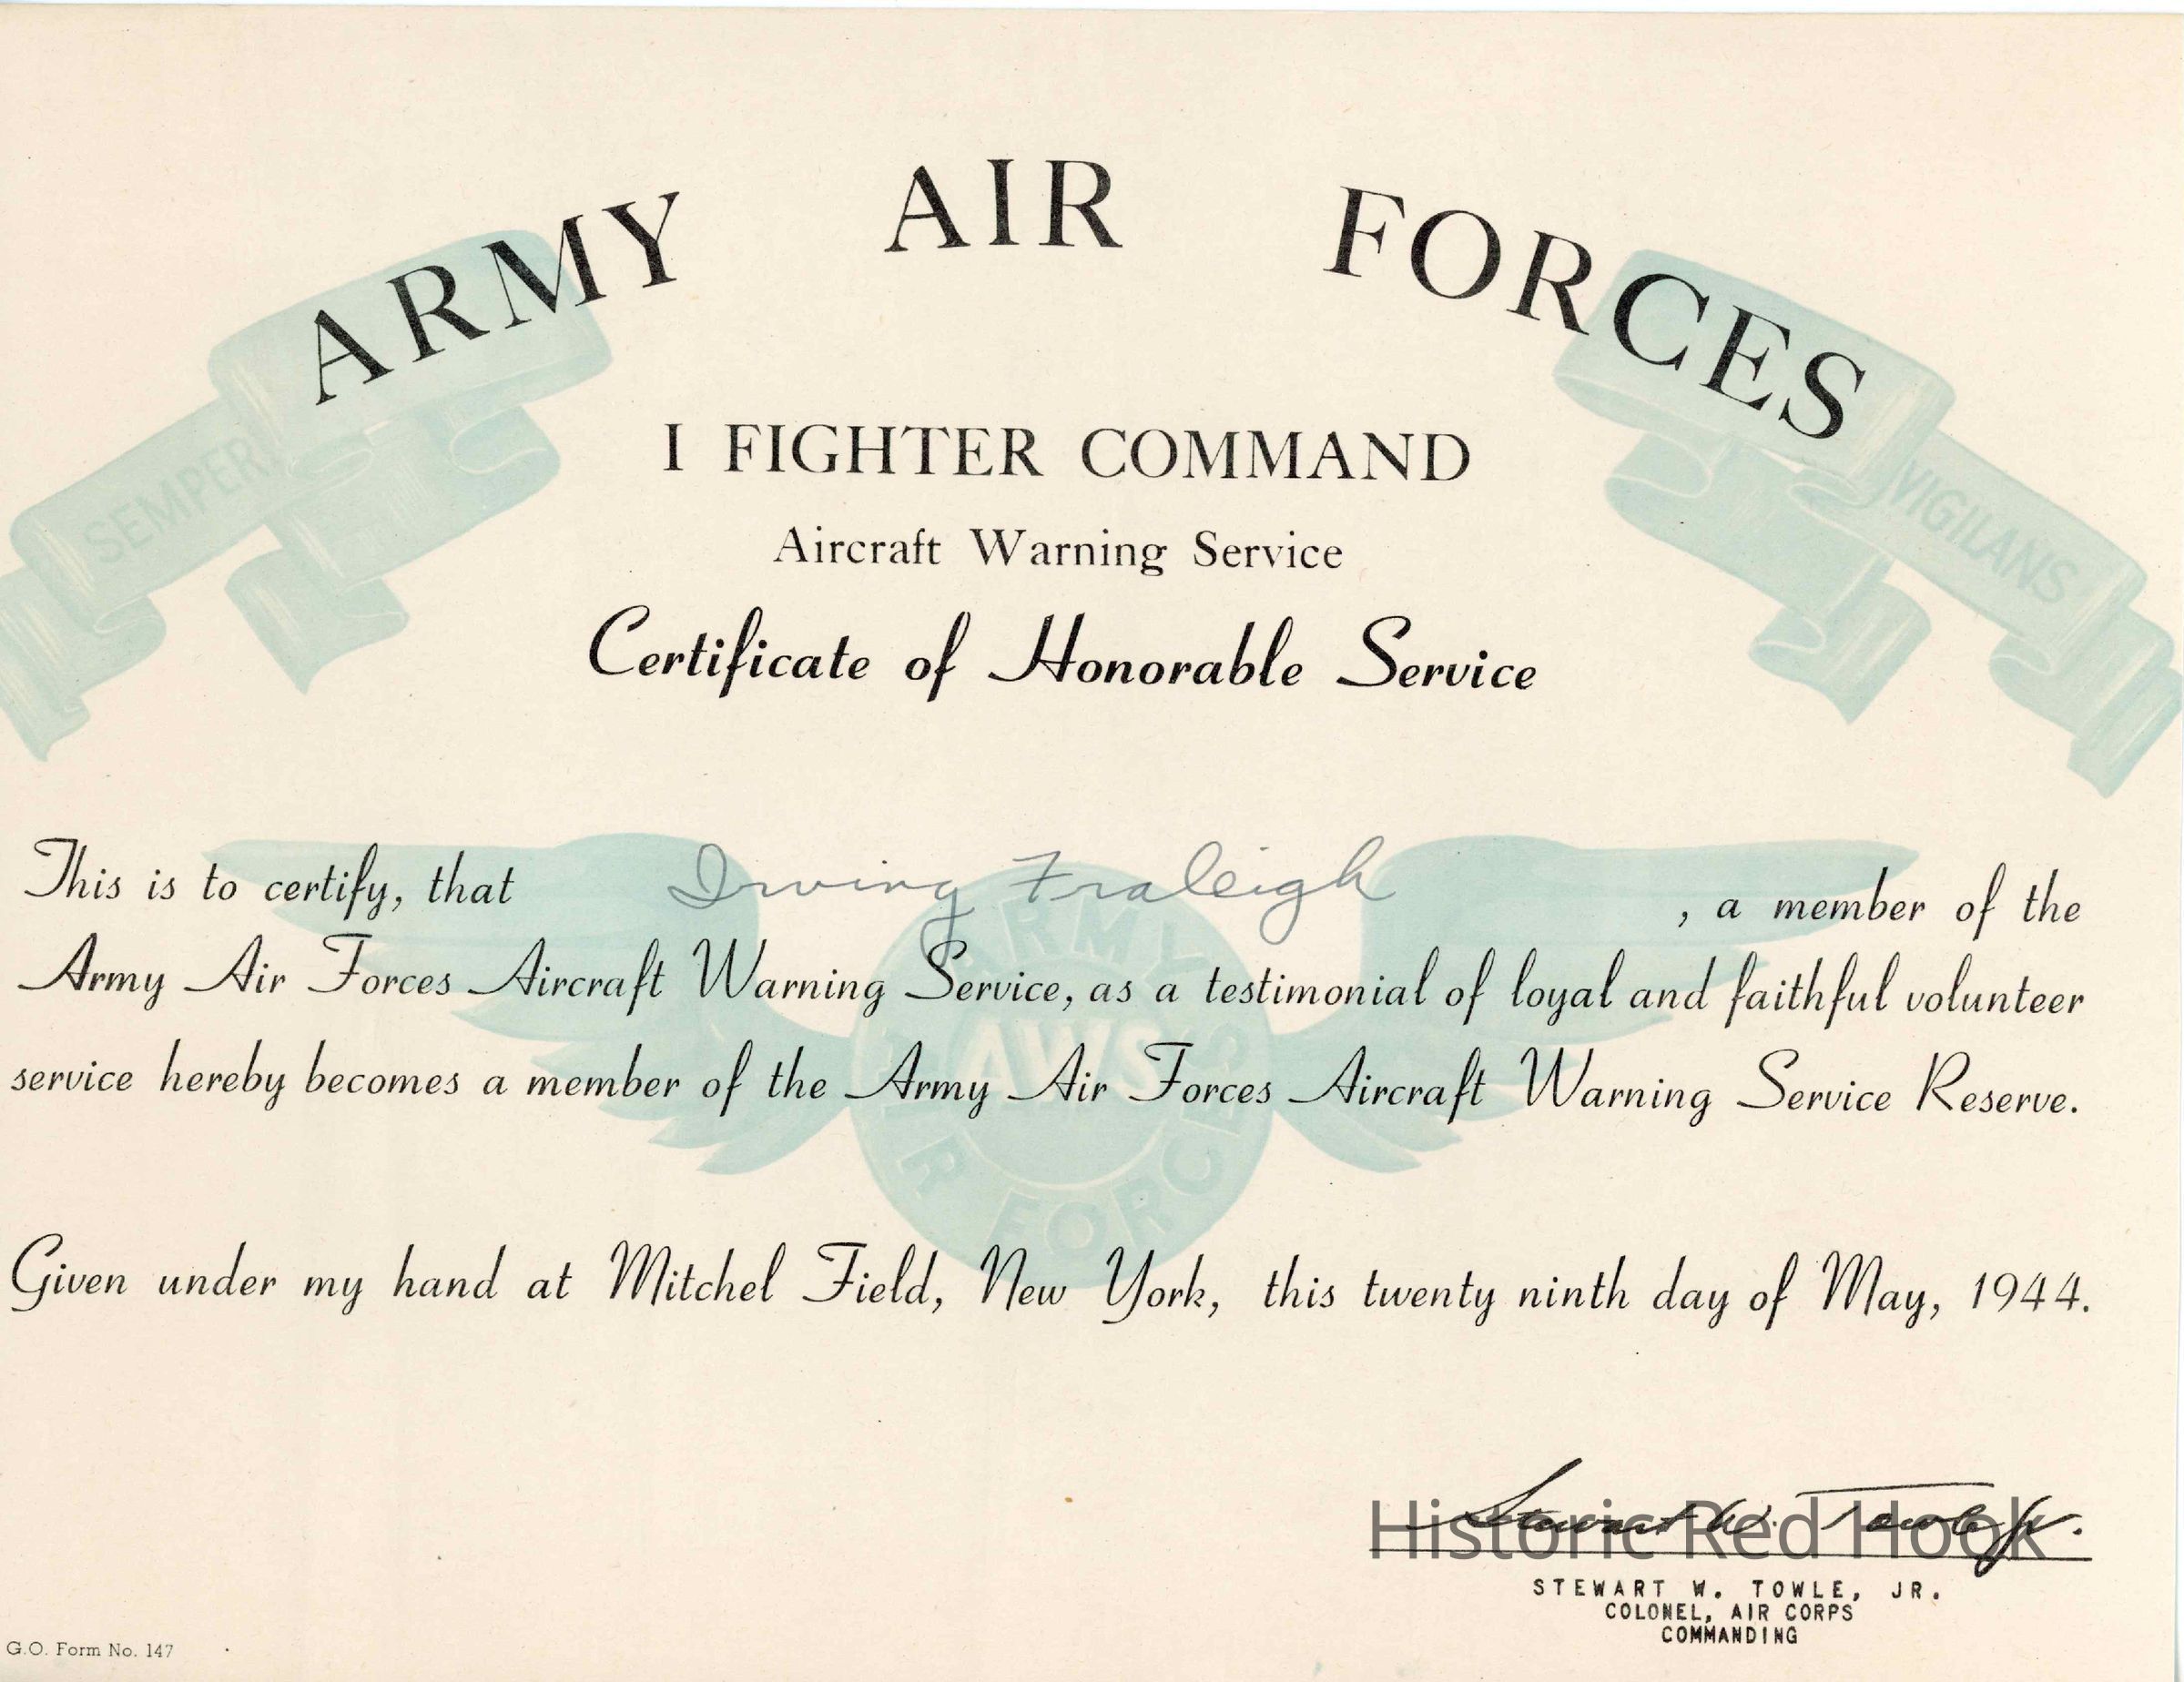 ARMY AIR FORCES
SEMPER VIGILANS
I FIGHTER COMMAND
Aircraft Warning Service
Certificate of Honorable Service
This is to certify, that Irving Fraleigh, a member of the
Army Air Forces Aircraft Warning Service, as a testimonial of loyal and faithful volunteer
service hereby becomes a member of the Army Air Forces Aircraft Warning Service Reserve.
ARMY AIR FORCES
AWS
Given under my hand at Mitchel Field, New York, this twenty ninth day of May, 1944.
Stewart W. Towle Jr.
Historic Red Hook
STEWART W. TOWLE, JR.
COLONEL, AIR CORPS
COMMANDING
G.O. Form No. 147